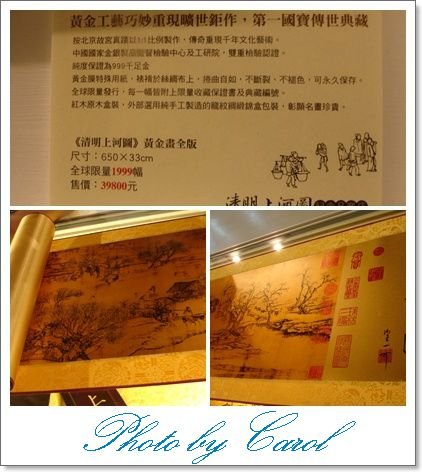 黃金工藝巧妙重現曠世鉅作，第一國寶傳世典藏
按北京故宮真蹟以1:1比例製作、傳奇重現千年文化藝術。
中國國家金銀製品質量檢驗中心及工研院，雙重檢驗認證。
純度保證為999千足金
黃金膜特殊用紙，裱褙於絲綢布上，捲曲自如，不斷裂、不褪色，可永久保存。
全球限量發行，每一幅皆附上限量收藏保證書及典藏編號。
紅木原木盒裝，外部選用純手工製造的龍紋綢緞錦盒包裝，彰顯名畫珍貴。
《清明上河圖》黃金畫全版
尺寸：650×33cm
全球限量1999幅
售價：39800元
清明上河圖
上
Photo by Carol